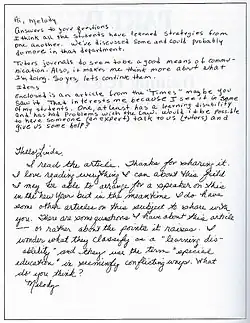 Hi, Melody
Answers to your questions
I think all the students have learned strategies from
one another. We've discussed some and could probably
do more in that department.
Tutors journals do seem to be a good means of commu-
nication. Also, it makes me think more about what
I'm doing. So yes, let's continue them.
Ideas
Enclosed is an article from the "Times" maybe you
saw it. That interests me because I see it in some
of my students. One, at least has a learning disability
and has had problems with the law. Would it be possible
to have someone (an expert) talk to us (tutors) and
give us some help?
Hello Linda,
I read the article. Thanks for sharing it.
I love reading everything I can about this field
I may be able to arrange for a speaker on this
in the new year but in the meantime I do have
some other articles on this subject to share with
you. There are some questions I have about this article
— or rather about the points it raises. I
wonder what they classify as a "learning dis-
ability" and they use the term "special
education" in seemingly conflicting ways. What
do you think?
Melody